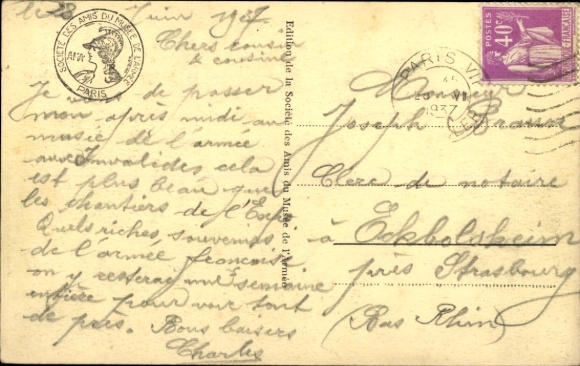 le 23 Juin 1937
Chers cousin
& cousine
Je viens de passer
mon après midi au
musée de l'armée
aux Invalides cela
est plus beau que
les chantiers de l'Expo
Quels riches souvenirs
de l'armée française
on y resterait une semaine
entière pour voir tout
de près. Bons baisers
Charles
SOCIÉTÉ DES AMIS DU MUSÉE DE L'ARMÉE
PARIS
Edition de la Société des Amis du Musée de l'Armée
POSTES
40c
PARIS VII
1937
Monsieur
Joseph Braun
Clerc de notaire
à Eckbolsheim
près Strasbourg
(Bas Rhin)